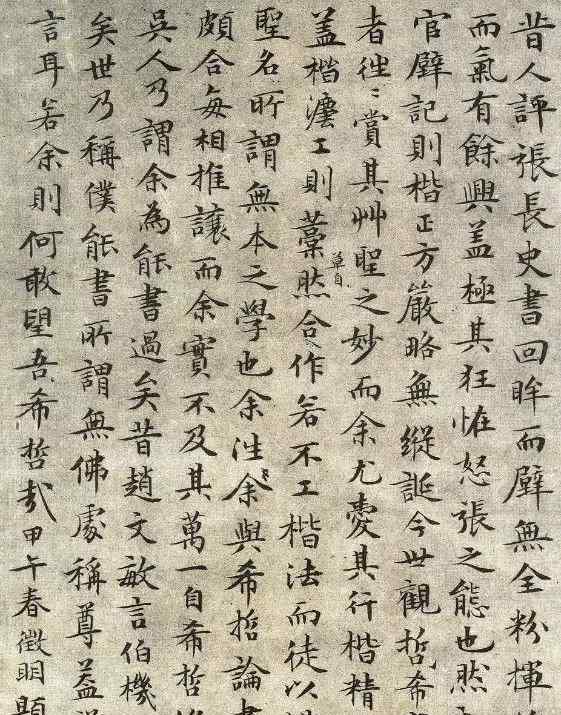 昔人評張長史書回眸而壁無全粉揮
而氣有餘興蓋極其狂怪怒張之態也然
官壁記則楷正方嚴略無縱誕今世觀希哲
者徃〻賞其艸聖之妙而余尤愛其行楷精
蓋楷灋工則藁草自然合作若不工楷法而徒以
聖名所謂無本之學也余往與希哲論書
頗合每相推讓而余實不及其萬一自希哲
吳人乃謂余為能書過矣昔趙文敏言伯機
矣世乃稱僕能書所謂無佛處稱尊益
言耳若余則何敢望吾希哲哉甲午春徵明題